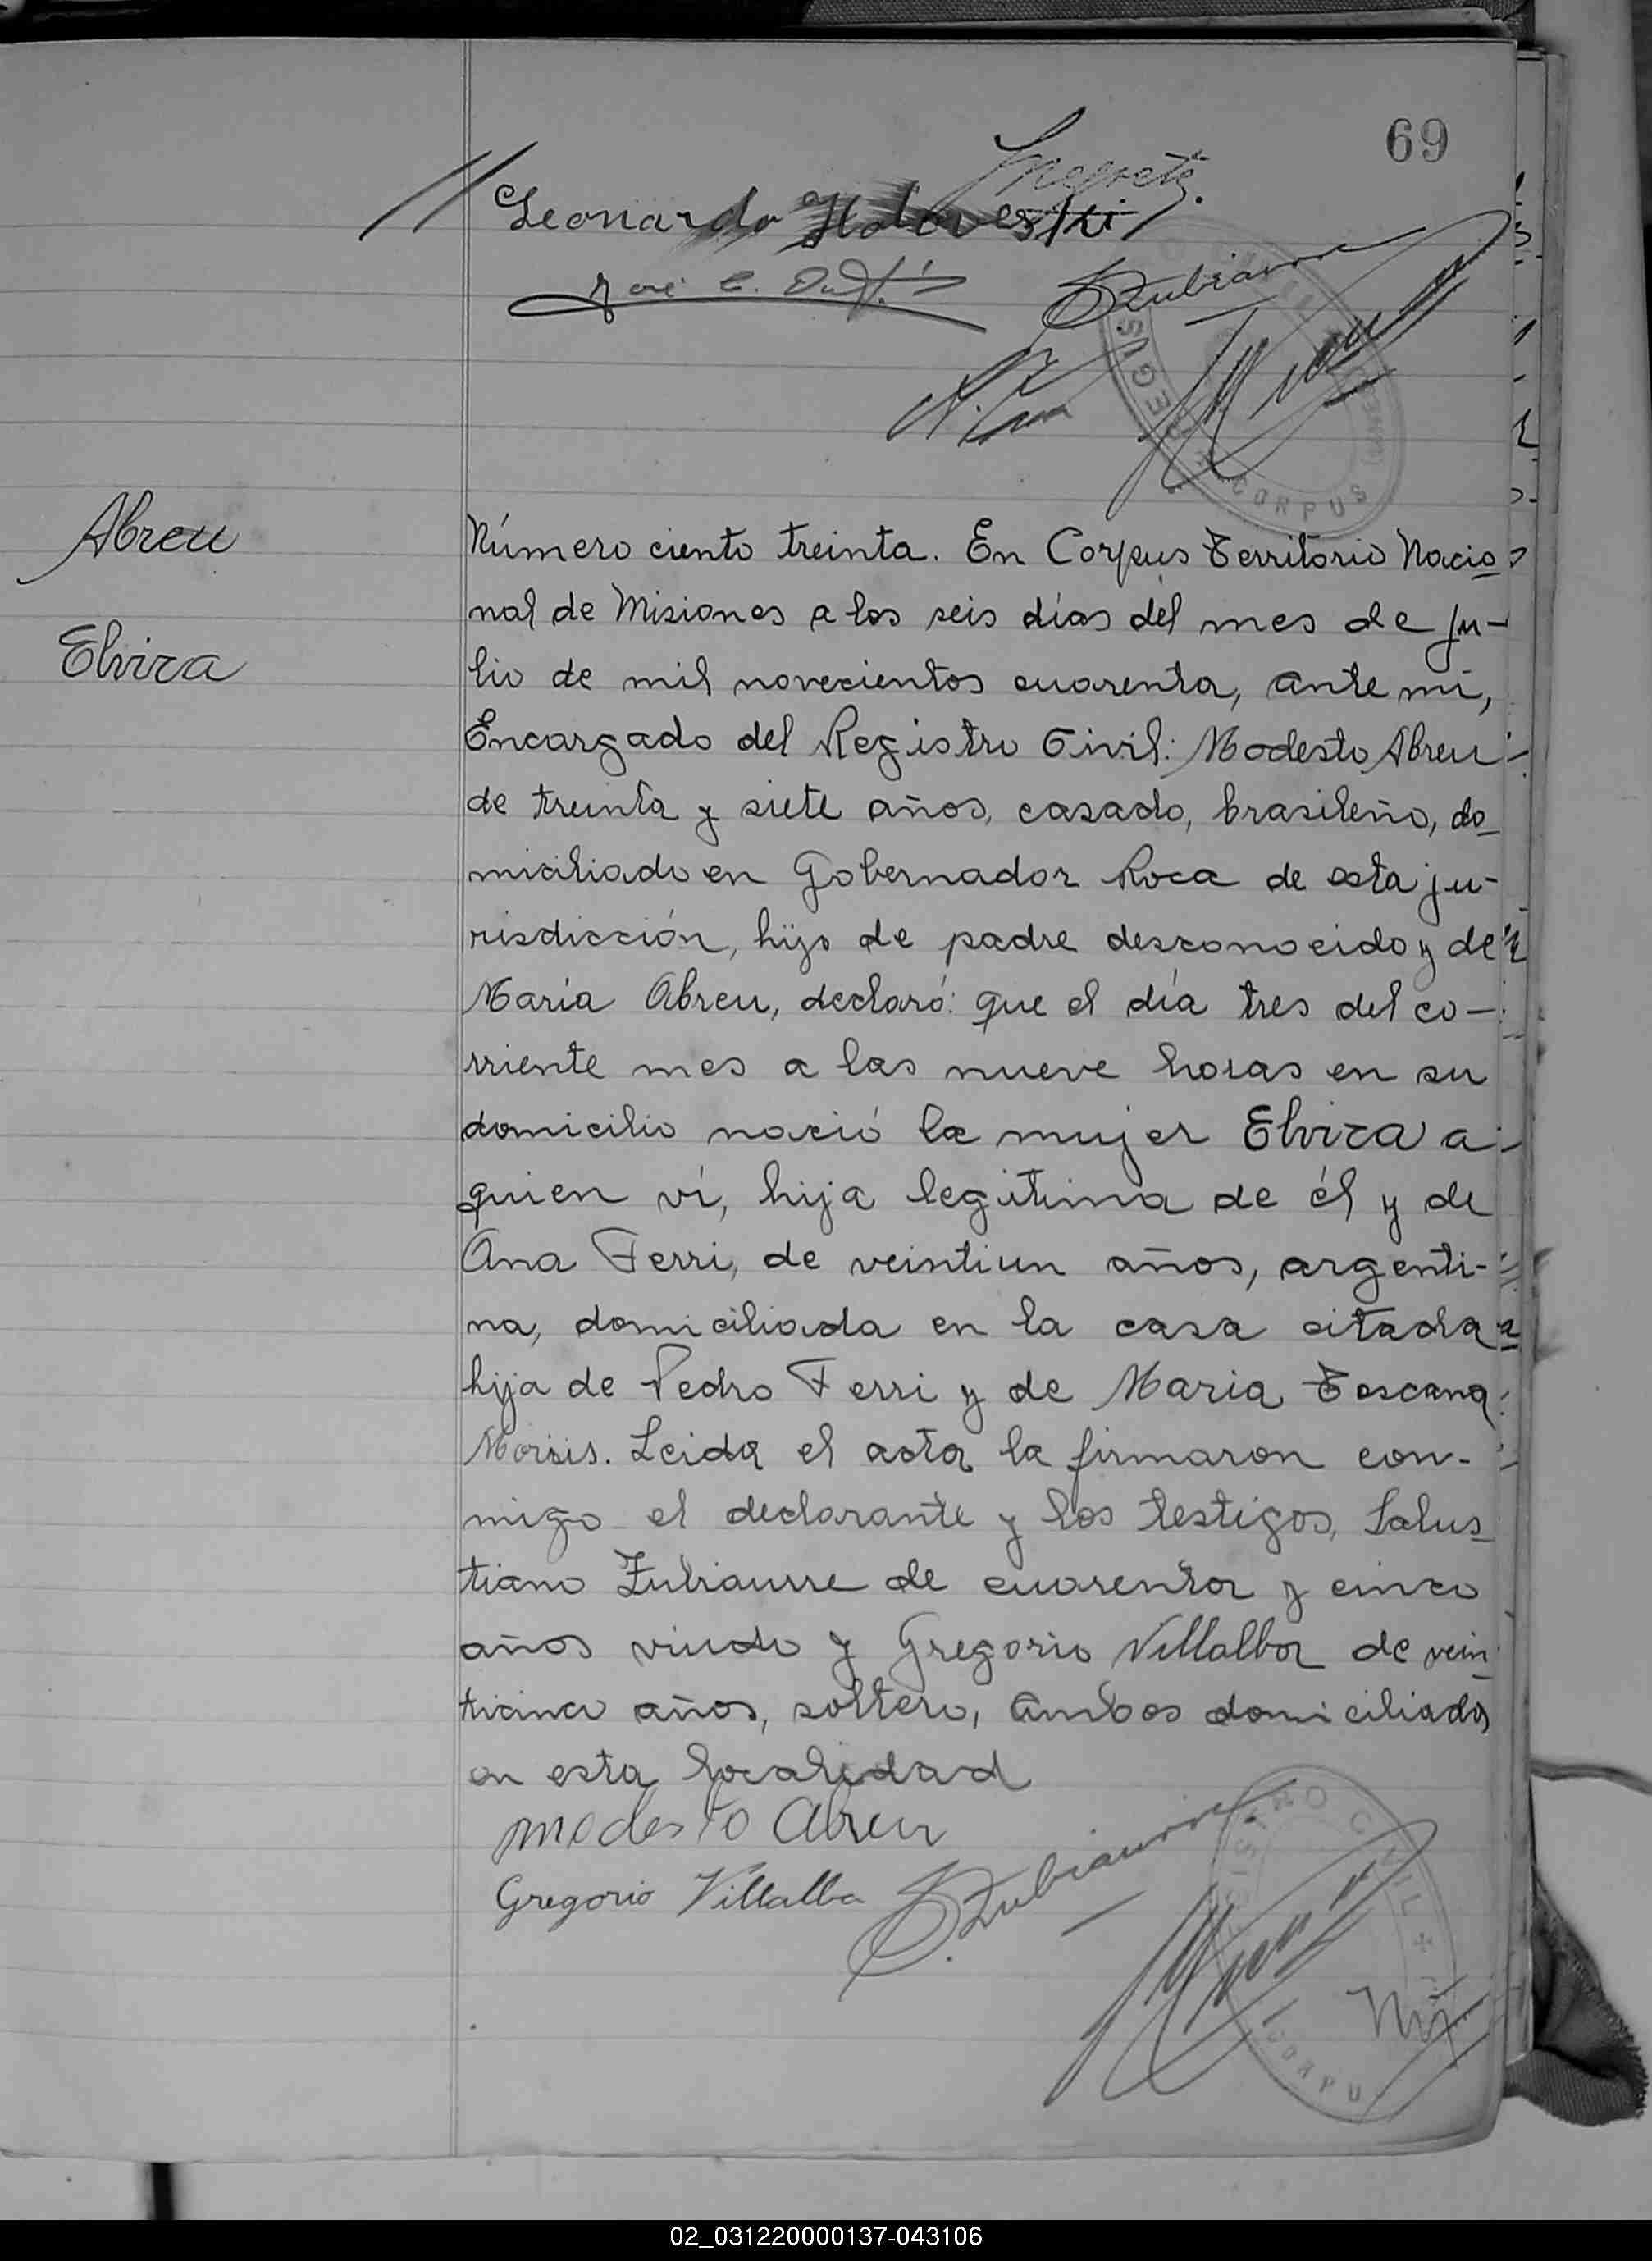 69
Leonardo
Zubiaurre
REGIS CIVIL CORPUS
Abreu
Elvira
Número ciento treinta. En Corpus Territorio Nacio
nal de Misiones a los seis días del mes de ju-
lio de mil novecientos cuarenta, ante mí,
Encargado del Registro Civil: Modesto Abreu
de treinta y siete años, casado, brasileño, do
miciliado en Gobernador Roca de esta ju-
risdicción, hijo de padre desconocido y de
María Abreu, declaró: que el día tres del co-
rriente mes a las nueve horas en su
domicilio nació la mujer Elvira a
quien ví, hija legítima de él y de
Ana Ferri, de veintiun años, argenti-
na, domiciliada en la casa citada
hija de Pedro Ferri y de Maria Toscana
Leida el acta la firmaron con-
migo el declarante y los testigos, Salus
tiano Zubiaurre de cuarenta y cinco
años viudo y Gregorio Villalba de vein
ticinco años, soltero, ambos domiciliados
en esta localidad
modesto Abreu
Gregorio Villalba
S. Zubiaurre
REGISTRO CIVIL CORPU
02_031220000137-043106